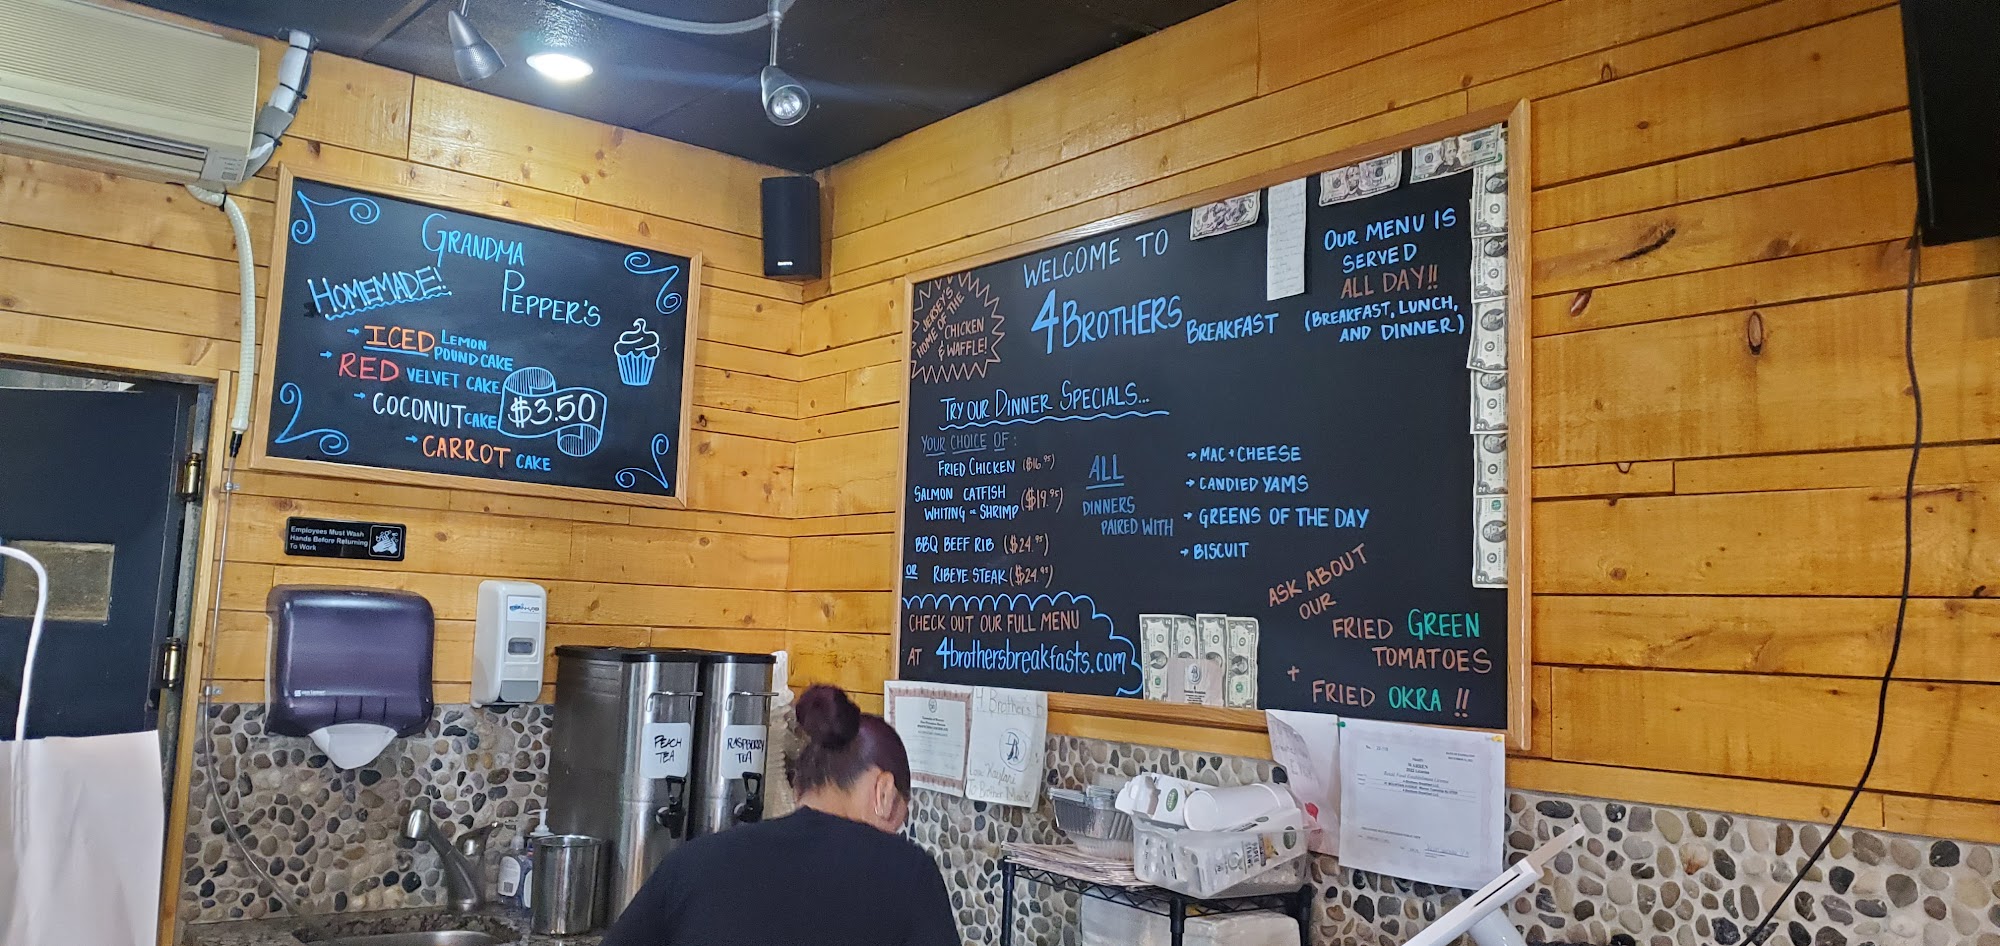 GRANDMA
PEPPER'S
HOMEMADE!
→ ICED LEMON
POUND CAKE
→ RED VELVET CAKE
→ COCONUT CAKE
→ CARROT CAKE
$3.50
Employees Must Wash
Hands Before Returning
To Work
PEACH
TEA
RASPBERRY
TEA
JERSEY'S
HOME OF THE
CHICKEN
& WAFFLE!
WELCOME TO
4 BROTHERS BREAKFAST
OUR MENU IS
SERVED
ALL DAY!!
(BREAKFAST, LUNCH,
AND DINNER)
TRY OUR DINNER SPECIALS...
YOUR CHOICE OF:
FRIED CHICKEN ($16.95)
SALMON CATFISH
WHITING OR SHRIMP ($19.95)
BBQ BEEF RIB ($24.95)
OR RIBEYE STEAK ($24.95)
ALL
DINNERS
PAIRED WITH
→ MAC + CHEESE
→ CANDIED YAMS
→ GREENS OF THE DAY
→ BISCUIT
ASK ABOUT
OUR
FRIED GREEN
TOMATOES
+ FRIED OKRA !!
CHECK OUT OUR FULL MENU
AT 4brothersbreakfasts.com
4 Brothers
WARREN